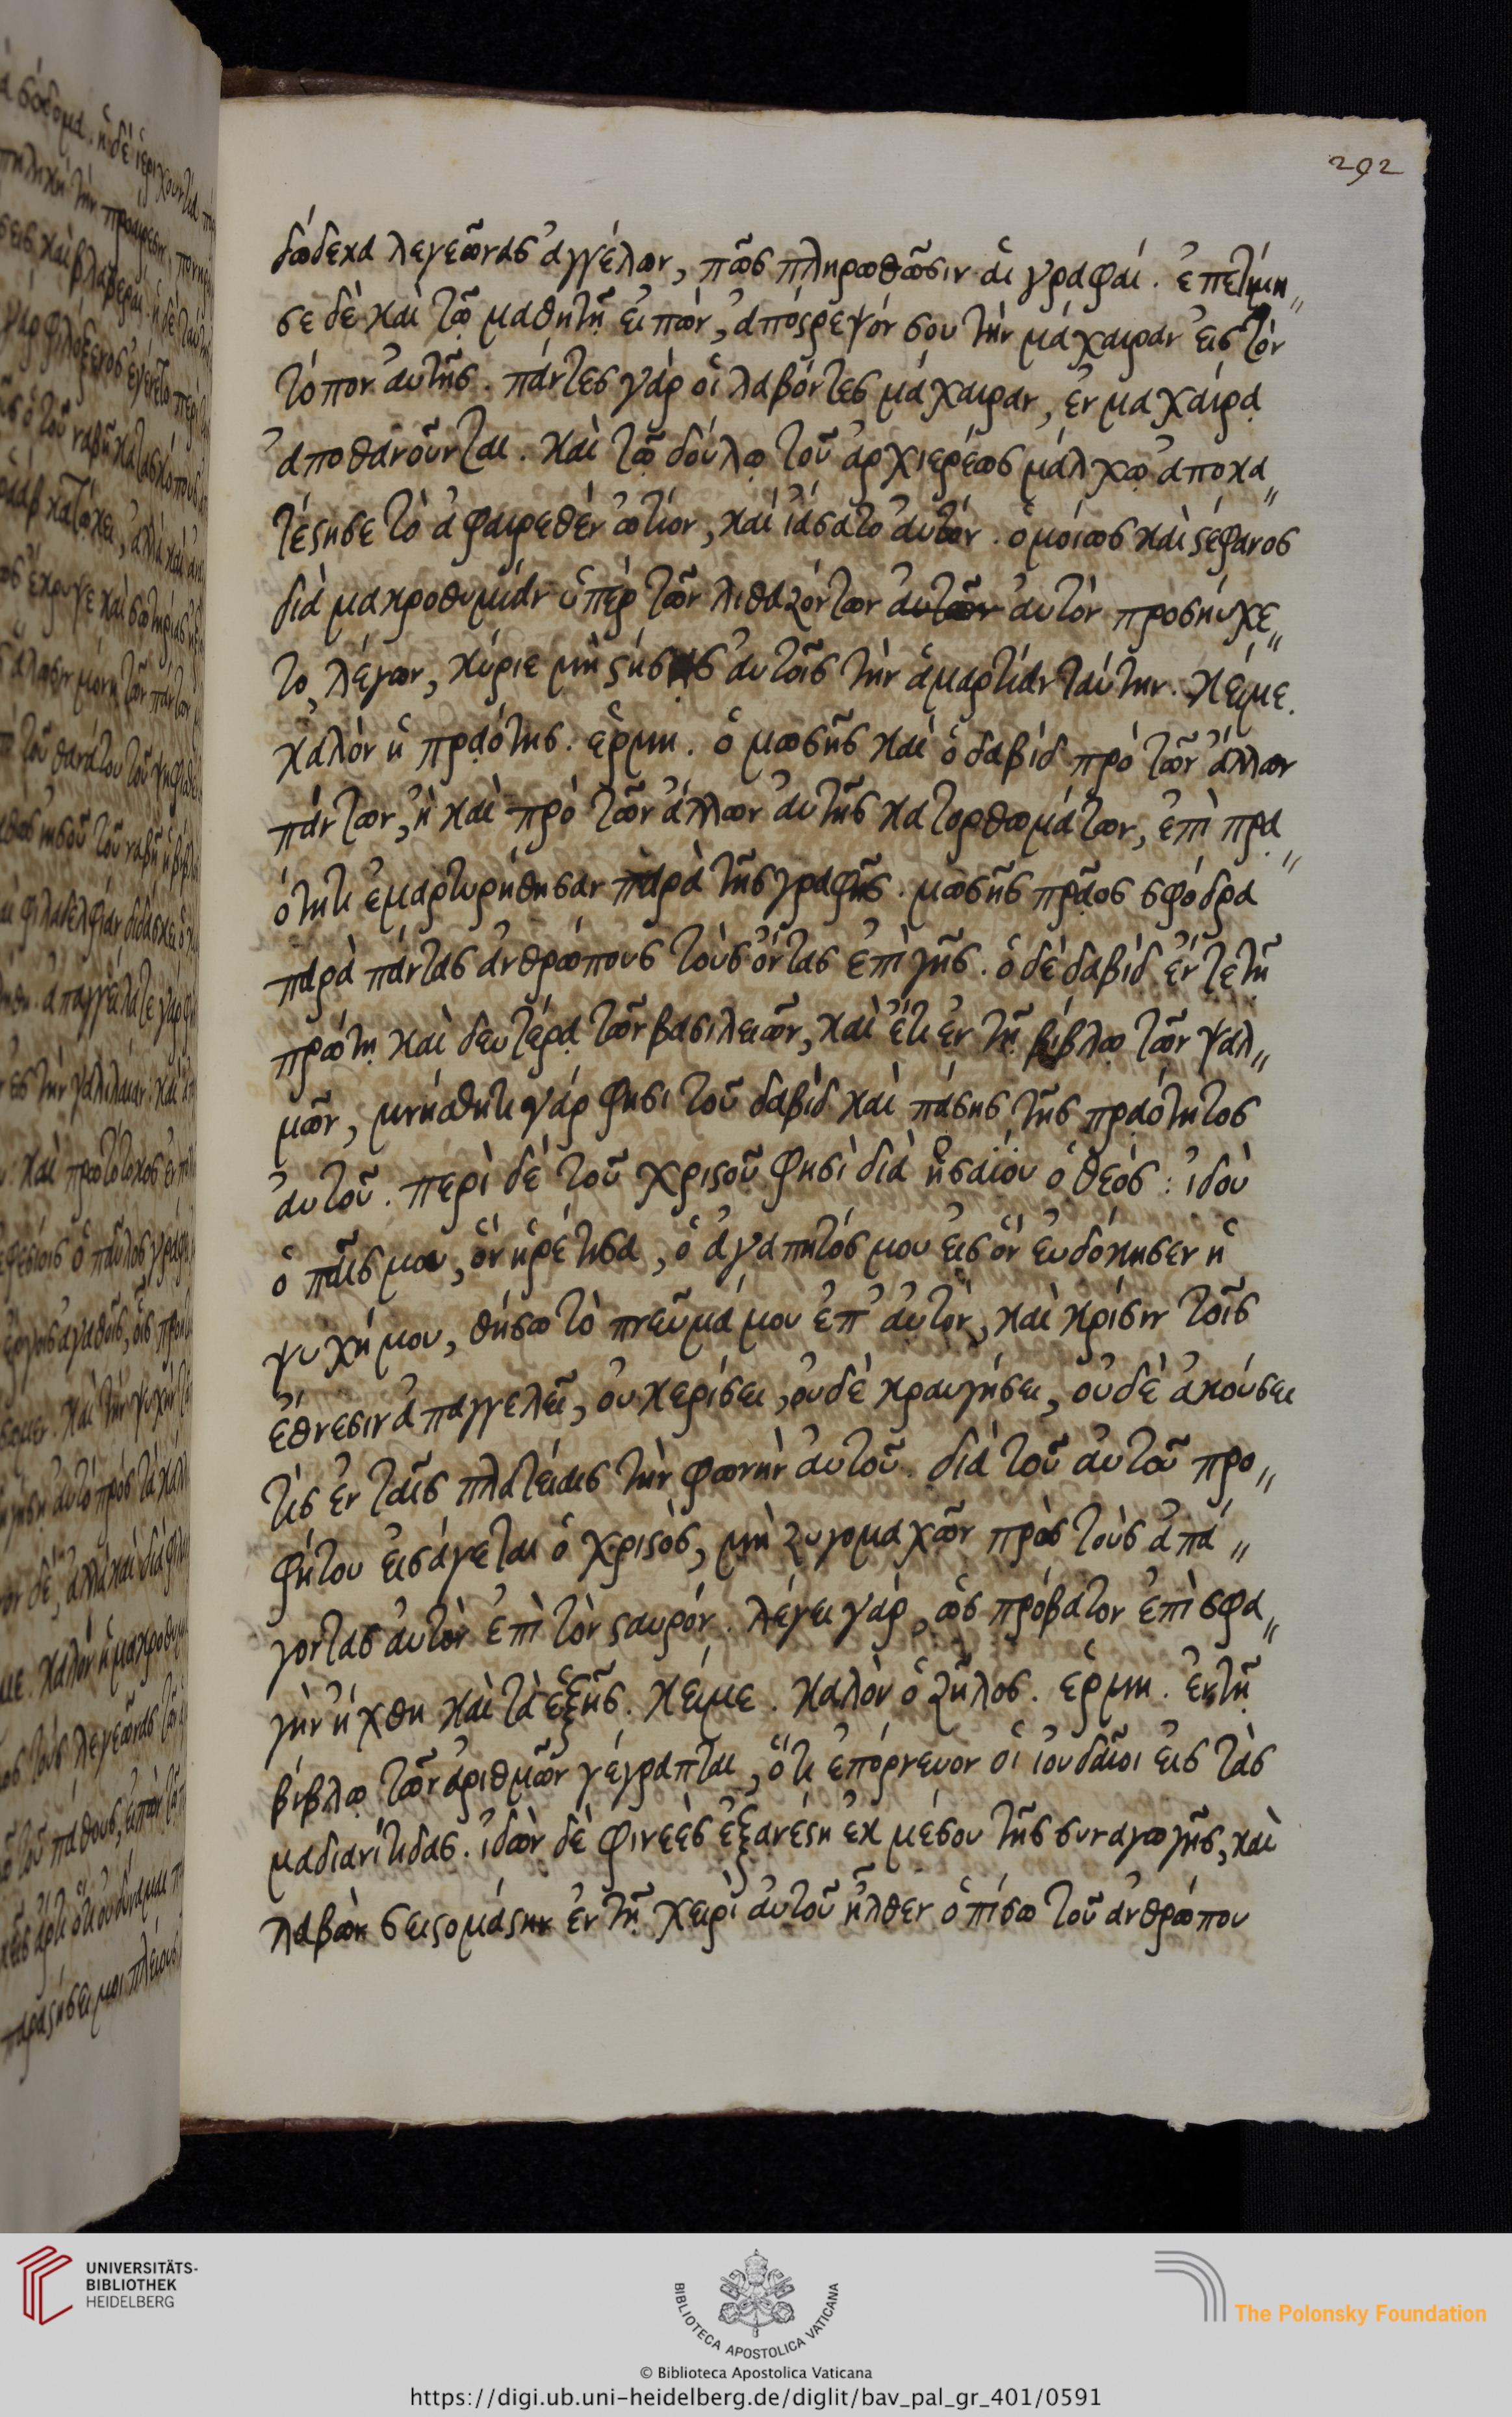 292
δώδεκα λεγεῶνας ἀγγέλων, πῶς πληρωθῶσιν αἱ γραφαί. ἐπετίμη
σε δὲ καὶ τῷ μαθητῇ εἰπών, ἀπόστρεψόν σου τὴν μάχαιραν εἰς τὸν
τόπον αὐτῆς. πάντες γάρ οἱ λαβόντες μάχαιραν, ἐν μαχαίρᾳ
ἀποθανοῦνται. καὶ τῷ δούλῳ τοῦ ἀρχιερέως μάλχῳ ἀποκα
τέστησε τὸ ἀφαιρεθὲν ὠτίον, καὶ ἰάσατο αὐτόν. ὁμοίως καὶ στέφανος
διὰ μακροθυμίαν ὑπὲρ τῶν λιθαζόντων αὐτὸν προσηύχε
το λέγων, κύριε μὴ στήσῃς αὐτοῖς τὴν ἁμαρτίαν ταύτην. κείμε.
καλὸν ἡ πραότης. ἑρμη. ὁ μωσῆς καὶ ὁ δαβὶδ πρὸ τῶν ἄλλων
πάντων, ἢ καὶ πρὸ τῶν ἄλλων αὐτῆς κατορθωμάτων, ἐπὶ πρᾳ
ότητι ἐμαρτυρήθησαν παρὰ τῆς γραφῆς. μωσῆς πρᾷος σφόδρα
παρὰ πάντας ἀνθρώπους τοὺς ὄντας ἐπὶ γῆς. ὁ δὲ δαβὶδ ἔν τε τῇ
πρώτῃ καὶ δευτέρᾳ τῶν βασιλειῶν, καὶ ἔτι ἐν τῇ βίβλῳ τῶν ψαλ
μῶν, μνήσθητι γάρ φησι τοῦ δαβὶδ καὶ πάσης τῆς πρᾳότητος
αὐτοῦ. περὶ δὲ τοῦ χριστοῦ φησὶ διὰ ἡσαΐου ὁ θεός: ἰδοὺ
ὁ παῖς μου, ὃν ᾑρέτησα, ὁ ἀγαπητός μου εἰς ὃν εὐδόκησεν ἡ
ψυχή μου, θήσω τὸ πνεῦμά μου ἐπ' αὐτὸν, καὶ κρίσιν τοῖς
ἔθνεσιν ἀπαγγελεῖ, οὐκ ερίσει, οὐδὲ κραυγήσει, οὐδὲ ἀκούσει
τίς ἐν ταῖς πλατείαις τὴν φωνὴν αὐτοῦ. διὰ τοῦ αὐτοῦ προ
φήτου εἰσάγεται ὁ χριστὸς, μὴ ζυγομαχῶν πρὸς τοὺς ἀπά
γοντας αὐτὸν ἐπὶ τὸν σταυρόν. λέγει γάρ, ὡς πρόβατον ἐπὶ σφα
γὴν ἤχθη καὶ τὰ ἑξῆς. κείμε. καλὸν ὁ ζῆλος. ἑρμη. ἐν τῇ
βίβλῳ τῶν ἀριθμῶν γέγραπται, ὅτι ἐπόρνευον οἱ ἰουδαῖοι εἰς τὰς
μαδιανίτιδας. ἰδὼν δὲ φινεὲς ἐξανέστη ἐκ μέσου τῆς συναγωγῆς, καὶ
λαβὼν σειστομάστην ἐν τῇ χειρὶ αὐτοῦ ἦλθεν ὀπίσω τοῦ ἀνθρώπου
UNIVERSITÄTS-
BIBLIOTHEK
HEIDELBERG
BIBLIOTECA APOSTOLICA VATICANA
The Polonsky Foundation
© Biblioteca Apostolica Vaticana
https://digi.ub.uni-heidelberg.de/diglit/bav_pal_gr_401/0591